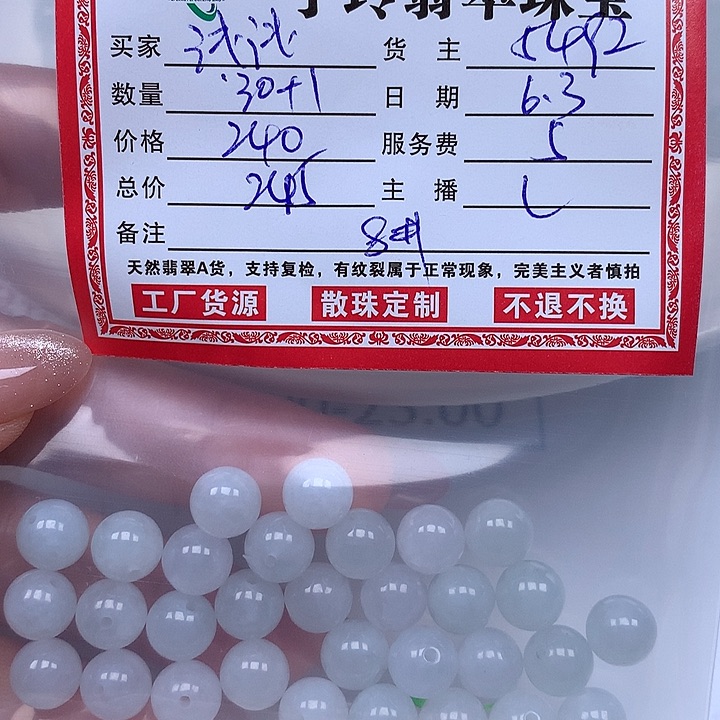 买家 试试 货主 5492
数量 30+1 日期 6.3
价格 240 服务费 5
总价 245 主播 L
备注
天然翡翠A货，支持复检，有纹裂属于正常现象，完美主义者慎拍
工厂货源 散珠定制 不退不换